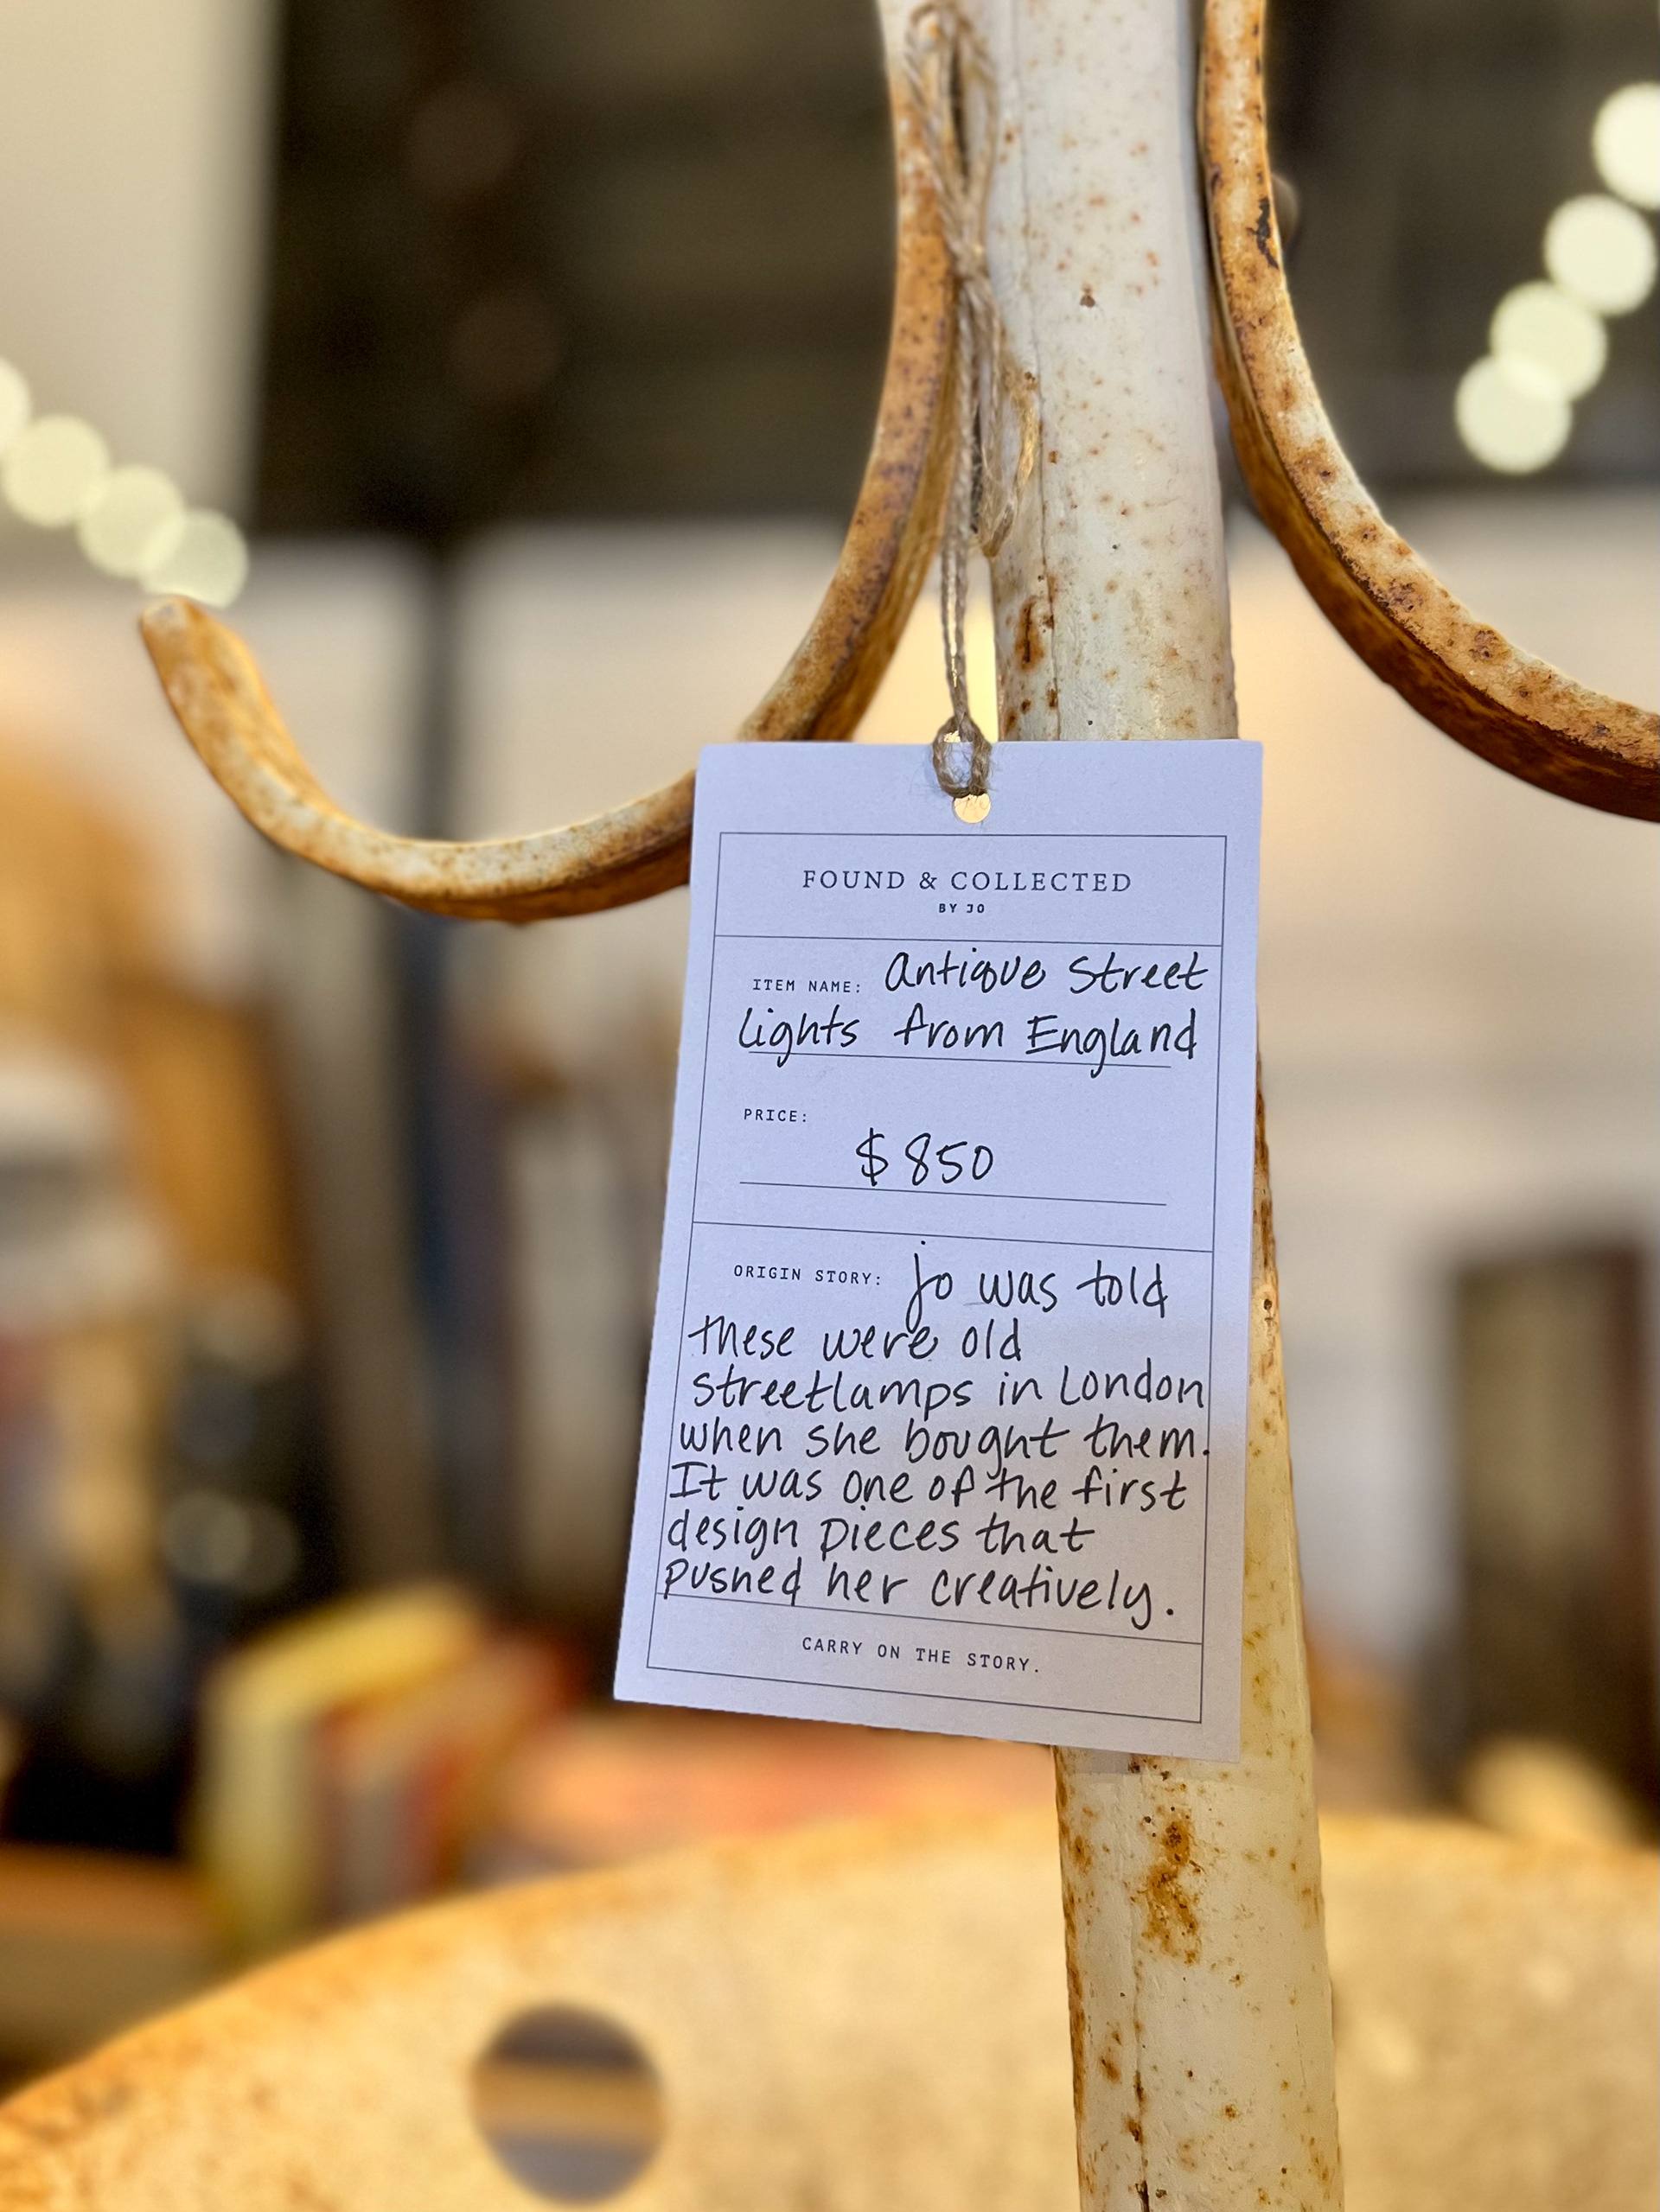 FOUND & COLLECTED
BY JO
ITEM NAME: Antique Street
Lights from England
PRICE:
$850
ORIGIN STORY: Jo was told
these were old
streetlamps in London
when she bought them.
It was one of the first
design pieces that
pushed her creatively.
CARRY ON THE STORY.